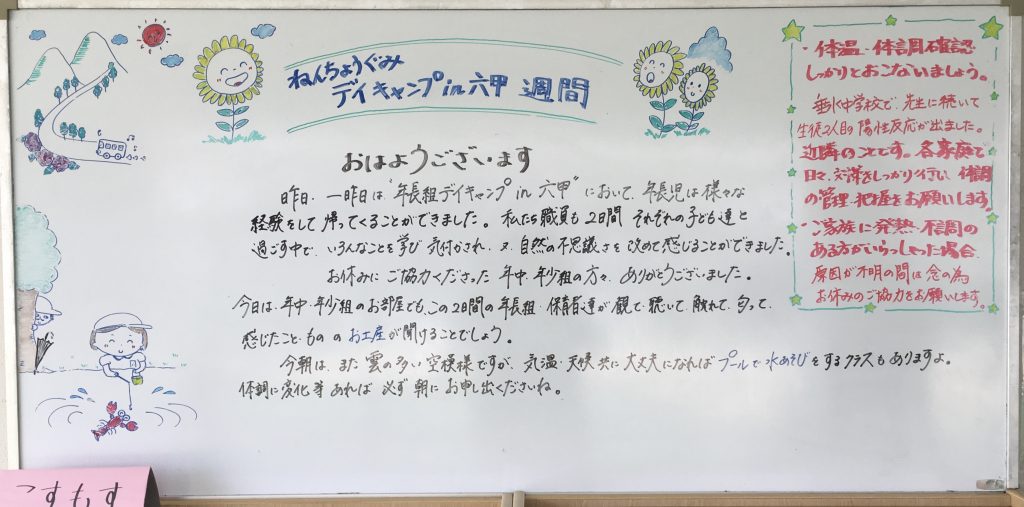 ねんちょうぐみ
デイキャンプin六甲 週間
おはようございます
昨日、一昨日は"年長組デイキャンプin 六甲"において、年長児は様々な
経験をして帰ってくることができました。私たち職員も2日間 それぞれの子ども達と
過ごす中で、いろんなことを学び 気付かされ、又、自然の不思議さを改めて感じることができました。
お休みに ご協力くださった 年中・年少組の方々、ありがとうございました。
今日は、年中・年少組のお部屋でも、この2日間の年長組・保育者達が観て・聴いて、触れて、匂って、
感じたこと・もの の お土産が聞けることでしょう。
今朝は、また 雲の多い 空模様ですが、気温 天候 共に 大丈夫になれば プールで水あそびをするクラスもありますよ。
体調に変化等あれば 必ず 朝に お申し出くださいね。
・体温・体調確認
しっかりとおこないましょう。
垂水中学校で 先生に続いて
生徒2人目の陽性反応が出ました。
近隣のことです。各家庭で
日々、をしっかり行い、体調
の管理・把握をお願いします。
・ご家族に発熱・不調の
ある方がいらっしゃった場合、
原因が不明の間は念の為
お休みのご協力をお願いします。
こすもす